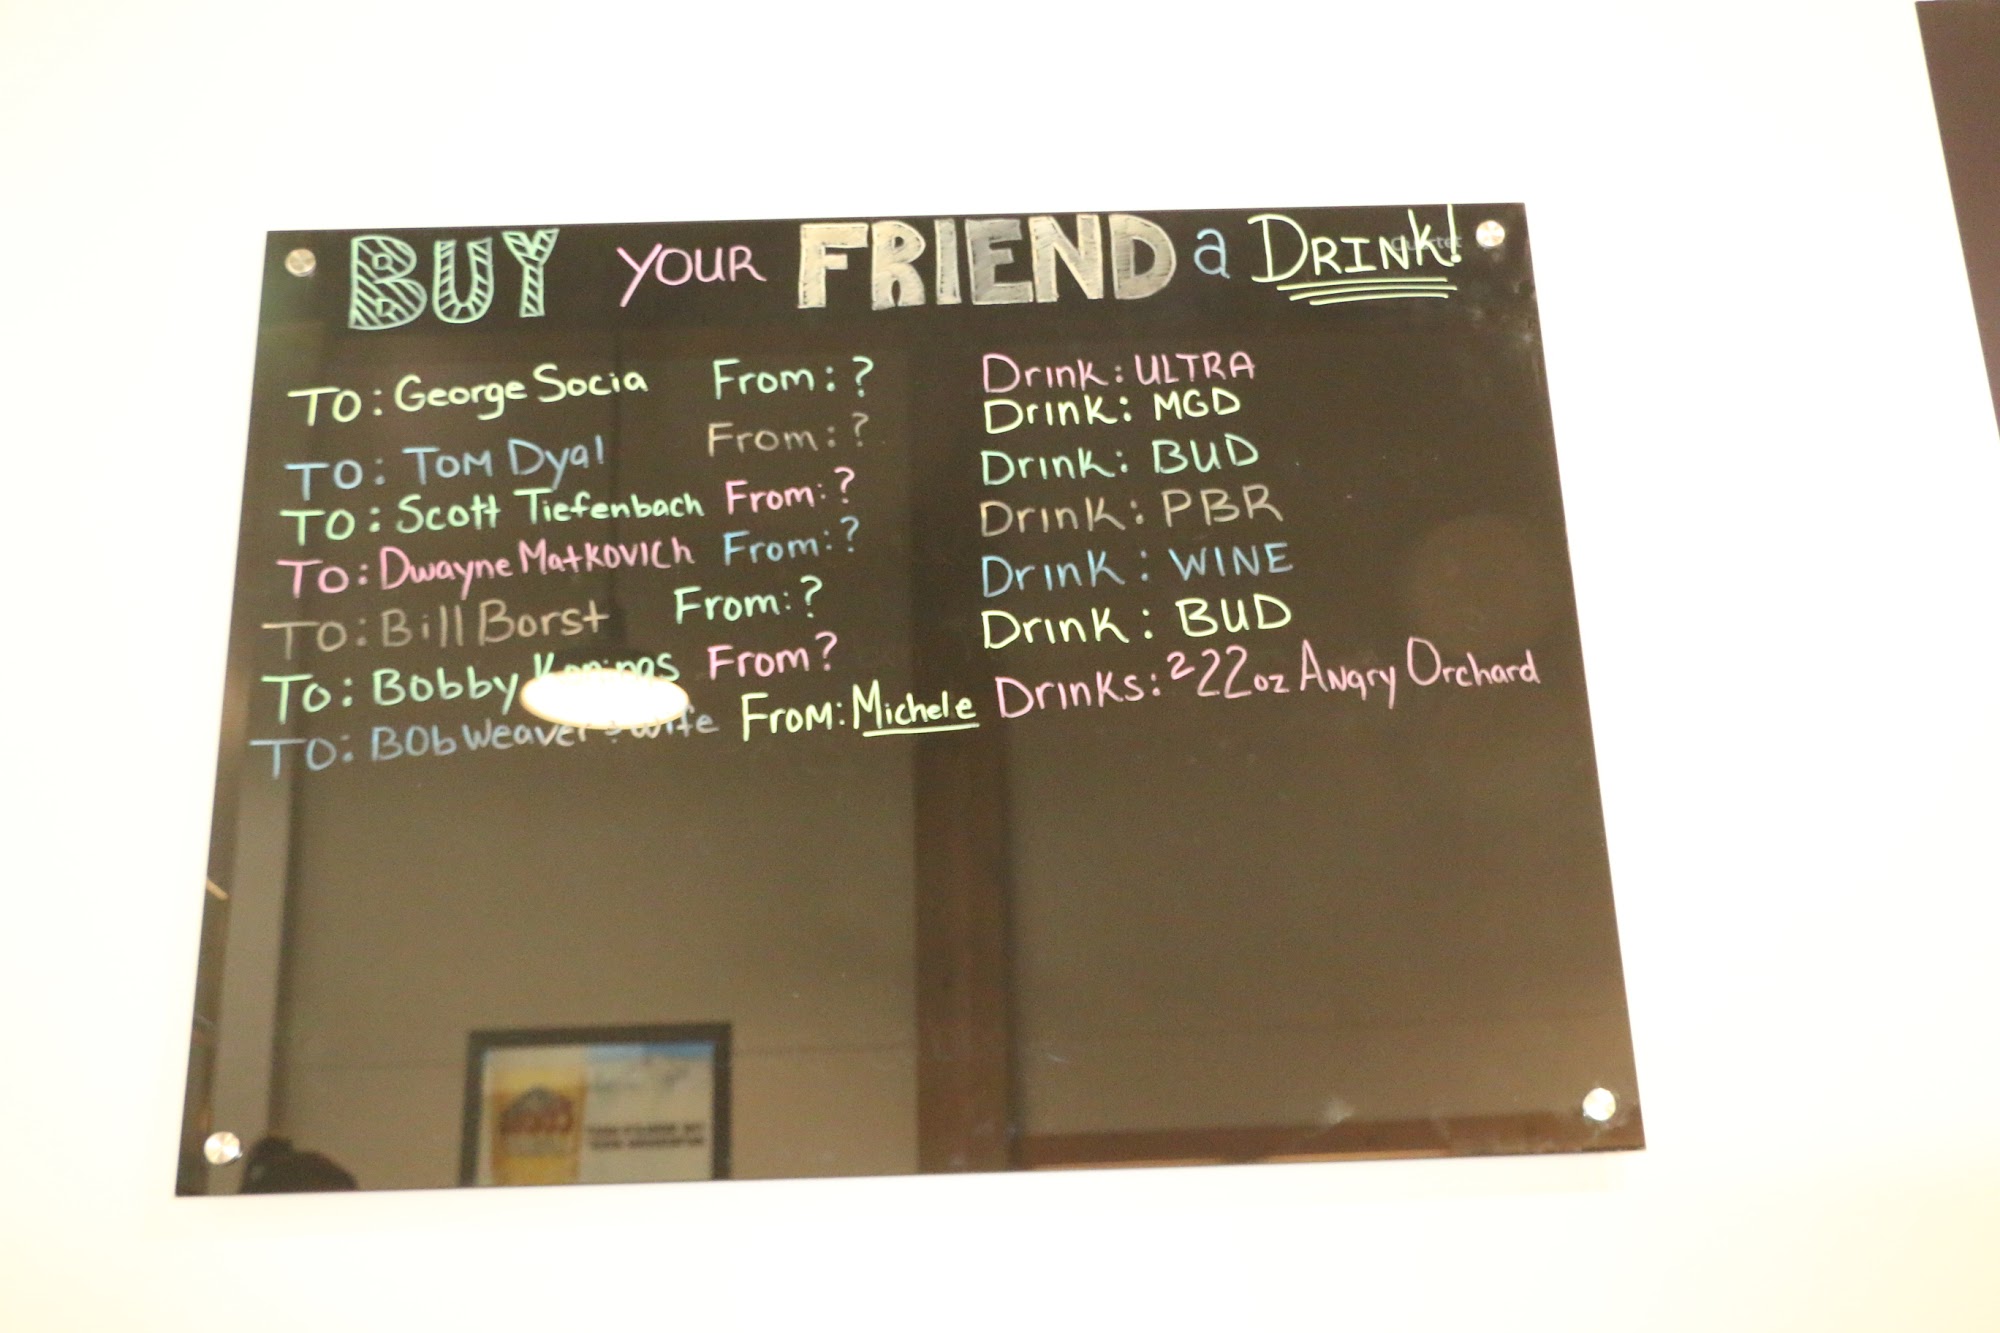 BUY YOUR FRIEND a DRINK!
TO: George Socia From: ? Drink: ULTRA
TO: TOM Dyal From: ? Drink: MGD
TO: Scott Tiefenbach From: ? Drink: BUD
TO: Dwayne Matkovich From: ? Drink: PBR
TO: Bill Borst From: ? Drink: WINE
TO: Bobby From? Drink: BUD
TO: BOb Weaver wife From: Michele Drinks: 2 22oz Angry Orchard